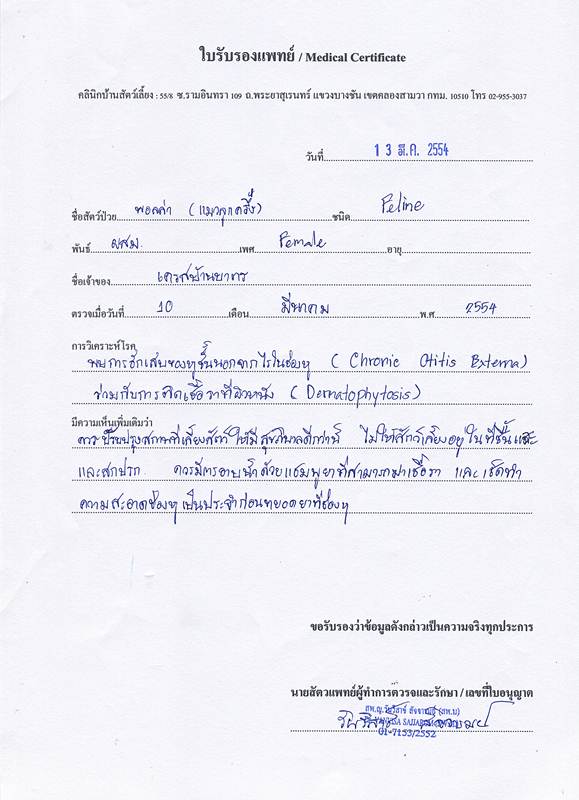 ใบรับรองแพทย์ / Medical Certificate
คลินิกบ้านสัตว์เลี้ยง : 55/8 ซ.รามอินทรา 109 ถ.พระยาสุเรนทร์ แขวงบางชัน เขตคลองสามวา กทม. 10510 โทร 02-955-3037
วันที่ 13 มี.ค. 2554
ชื่อสัตว์ป่วย พอลล่า (แมวลูกครึ่ง) ชนิด Feline
พันธุ์ ผสม. เพศ Female อายุ
ชื่อเจ้าของ
ตรวจเมื่อวันที่ 10 เดือน มีนาคม พ.ศ. 2554
การวิเคราะห์โรค
พบการอักเสบของหูชั้นนอกจากไรในช่องหู (Chronic Otitis Externa)
ร่วมกับการติดเชื้อราที่ผิวหนัง (Dermatophytosis)
มีความเห็นเพิ่มเติมว่า
ควรปรับปรุงสภาพที่เลี้ยงสัตว์ ให้มีสุขอนามัยดีกว่านี้ ไม่ให้สัตว์เลี้ยงอยู่ในที่ชื้นแฉะ
และสกปรก ควรมีการอาบน้ำด้วยแชมพูยาที่สามารถฆ่าเชื้อรา และเช็ดทำ
ความสะอาดช่องหูเป็นประจำก่อนหยอดยาที่ช่องหู
ขอรับรองว่าข้อมูลดังกล่าวเป็นความจริงทุกประการ
นายสัตวแพทย์ผู้ทำการตรวจและรักษา / เลขที่ใบอนุญาต
01-7153/2552